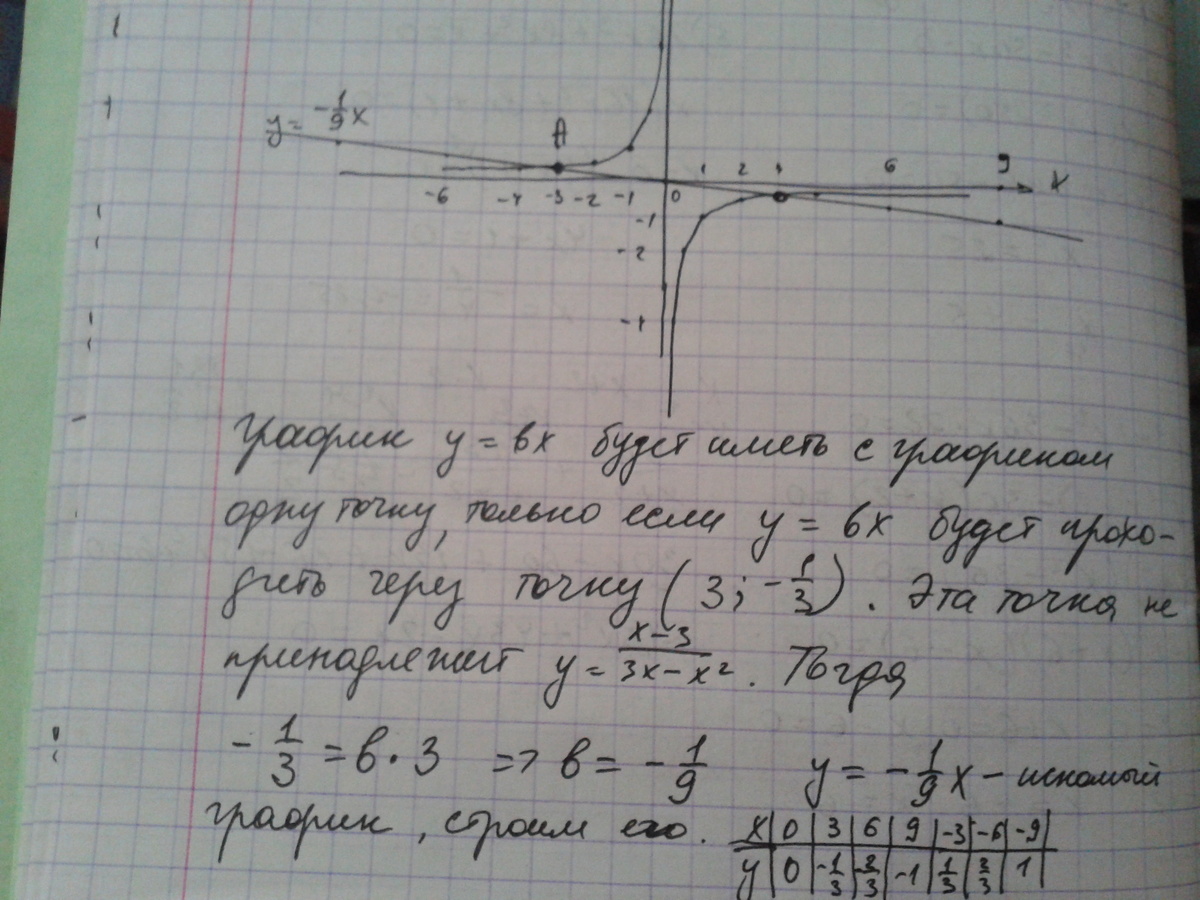 y = -1/9 x
A
1 2 3 6 9 x
-6 -4 -3 -2 -1 0
-1
-2
-4
График y = вx будет иметь с графиком
одну точку, только если y = вx будет прохо-
дить через точку (3; -1/3). Эта точка не
принадлежит y = (x-3)/(3x-x²). Тогда
-1/3 = в·3 => в = -1/9 y = -1/9 x - искомый
график, строим его.
x | 0 | 3 | 6 | 9 | -3 | -6 | -9
y | 0 | -1/3 | -2/3 | -1 | 1/3 | 2/3 | 1